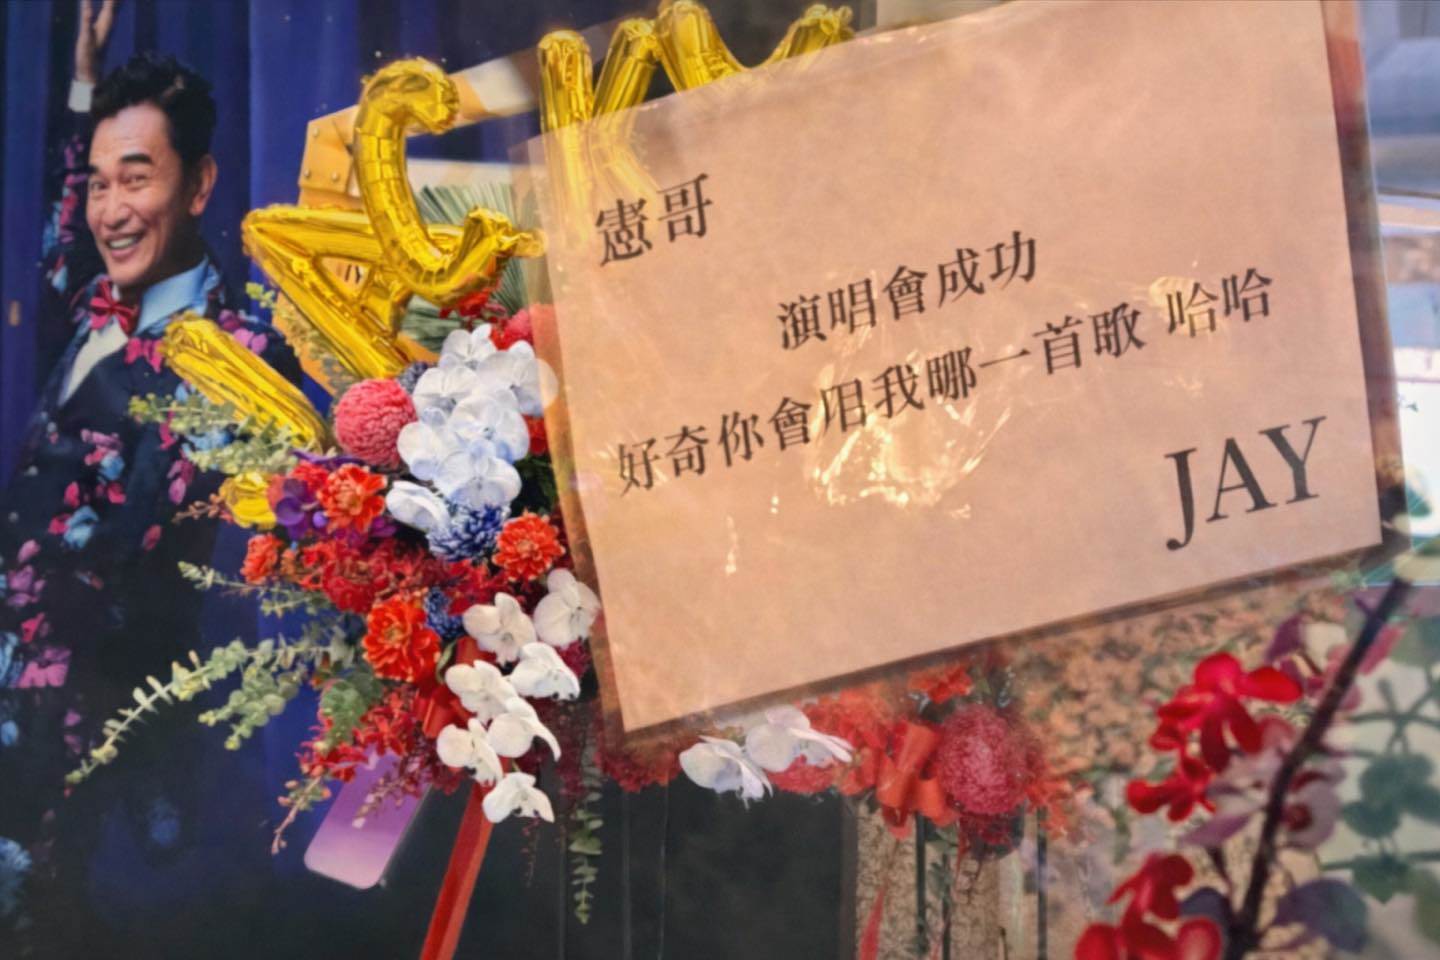 JACKY
憲哥
演唱會成功
好奇你會唱我哪一首歌 哈哈
JAY